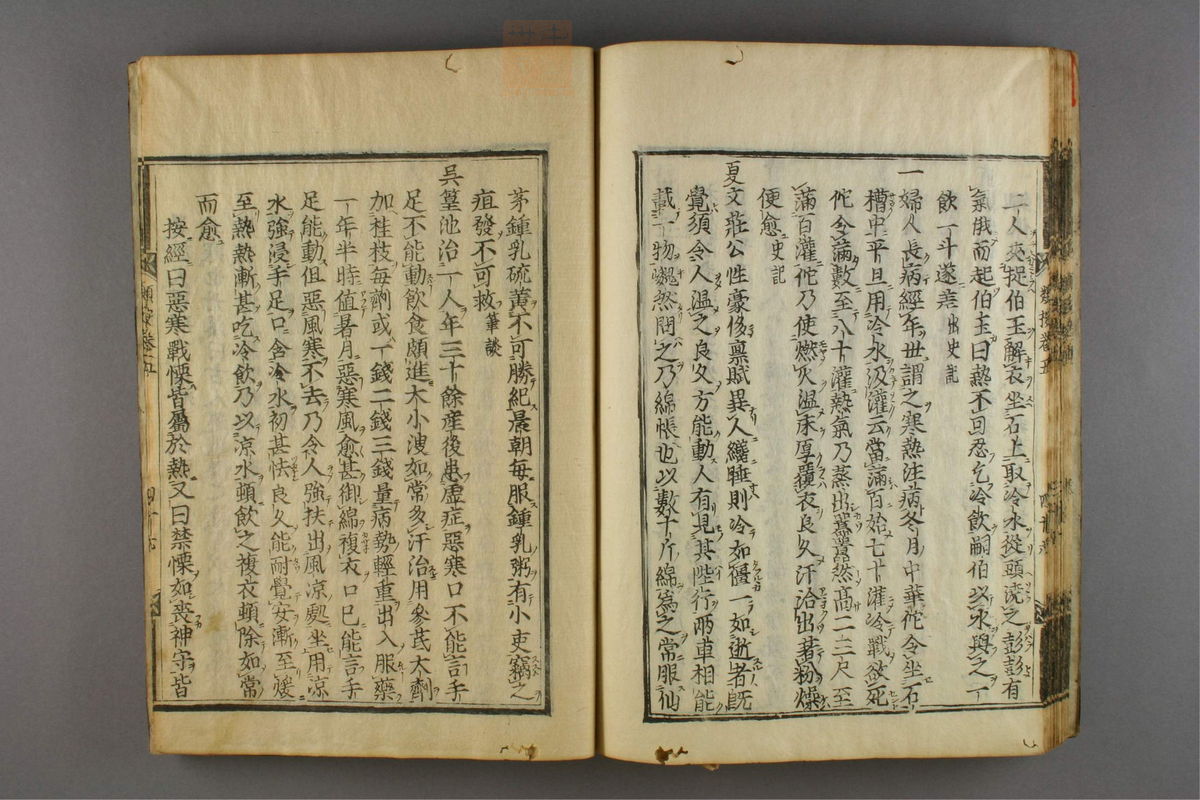 二人夾捉伯玉解衣坐石上取冷水從頭澆之彭彭有
氣俄而起伯玉曰熱不可忍乞冷飲嗣伯以水與之一
飲一斗遂差 出史記
一婦人長病經年世謂之寒熱注病冬月中華佗令坐石
槽中平旦用冷水汲灌云當滿百始七十灌冷戰欲死
佗令滿數至八十灌熱氣乃蒸出囂囂然高二三尺至
滿百灌佗乃使燃火溫床厚覆衣良久汗洽出著粉燥
便愈 史記
夏文莊公性豪侈稟賦異人纔睡則冷如僵一如逝者既
覺須令人溫之良久方能動人有見其陸行兩車相能
載一物巍然問之乃綿帳也以數十斤綿爲之常服仙
茅鍾乳硫黃不可勝紀晨朝每服鍾乳粥有小吏竊之
疽發不可救 筆談
吳篁池治一人年三十餘産後患虛症惡寒口不能言手
足不能動飲食頗進大小溲如常多汗治用參芪大劑
加桂枝每劑或一錢二錢三錢量病勢輕重出入服藥
一年半時值暑月惡寒風愈甚御綿複衣口已能言手
足能動但惡風寒不去乃令人強扶出風凉處坐用凉
水強浸手足口含冷水初甚怯良久能耐覺安漸至煖
至熱熱漸甚吃冷飲乃以凉水頓飲之複衣頓除如常
而愈
按經曰惡寒戰慄皆屬於熱又曰禁慄如喪神守皆
類案卷五
四十六